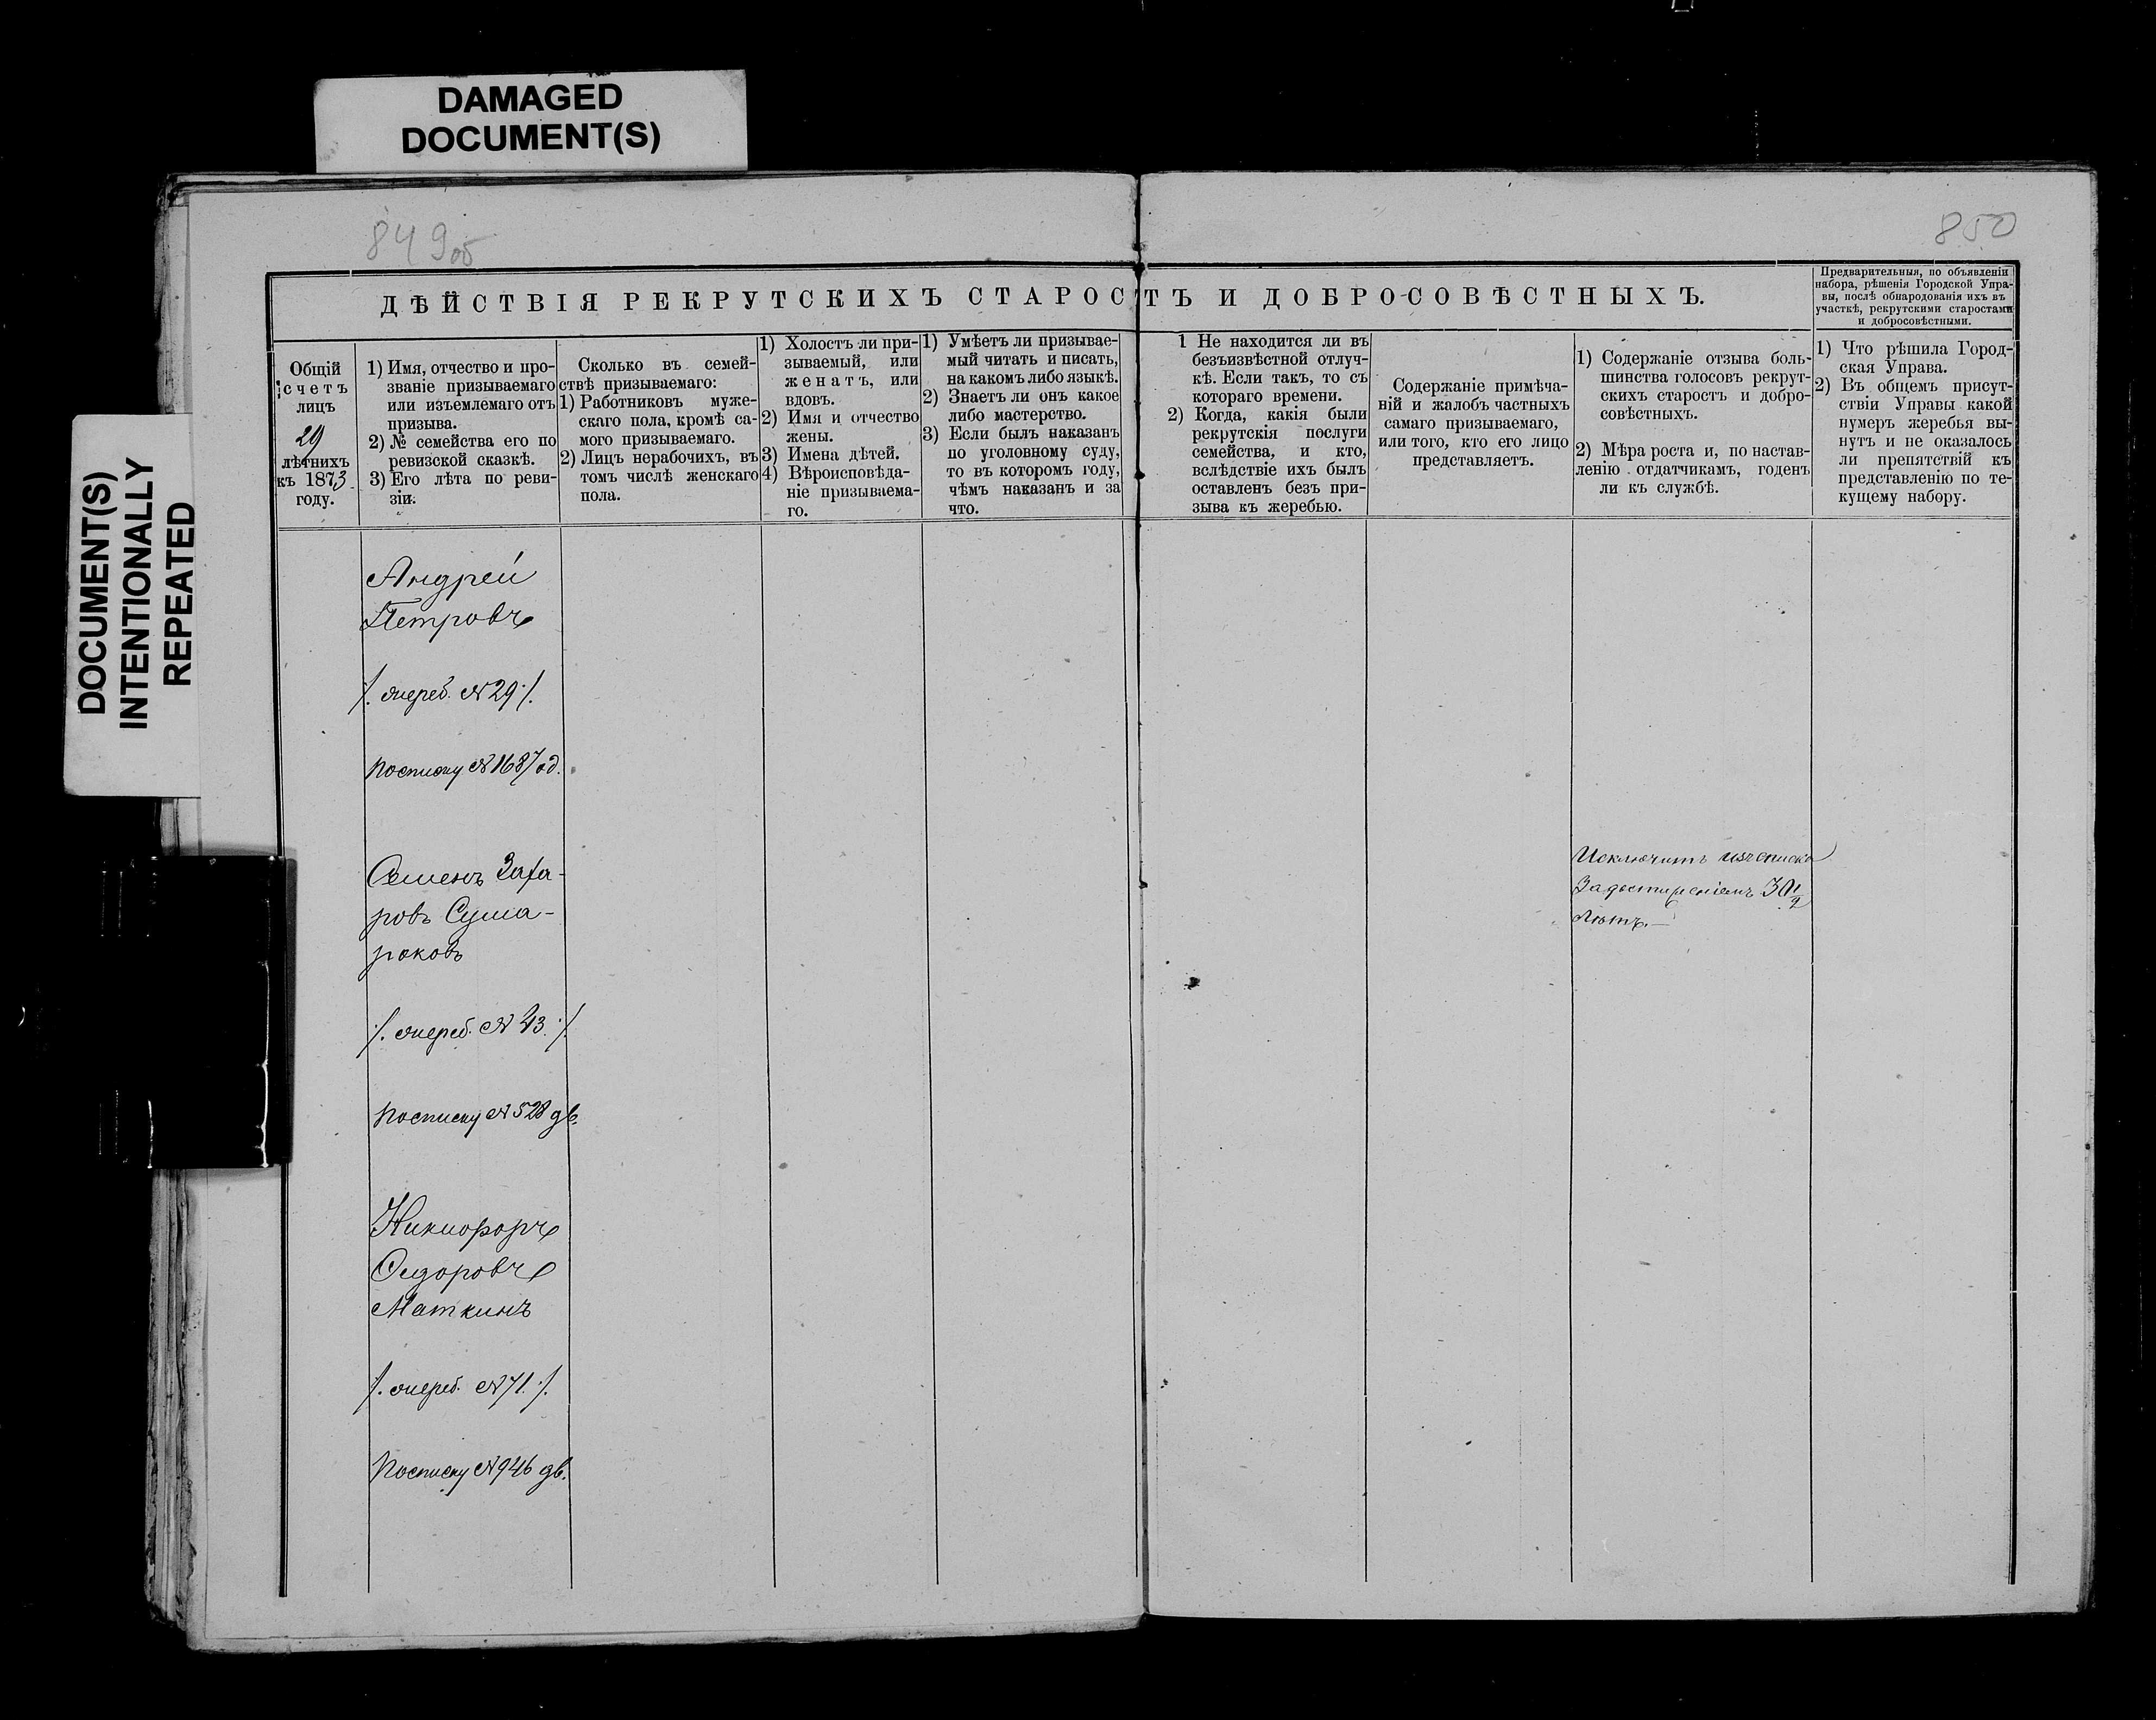 DAMAGED
DOCUMENT(S)
DOCUMENT(S)
INTENTIONALLY
REPEATED
849об
850
ДѢЙСТВІЯ РЕКРУТСКИХЪ СТАРОСТЪ И ДОБРО-СОВѢСТНЫХЪ.
Предварительныя, по объявленіи
набора, рѣшенія Городской Упра-
вы, послѣ обнародованія ихъ въ
участкѣ, рекрутскими старостами
и добросовѣстными.
Общій
счетъ
лицъ
29
лѣтнихъ
къ 1873
году.
1) Имя, отчество и про-
званіе призываемаго
или изъемлемаго отъ
призыва.
2) № семейства его по
ревизской сказкѣ.
3) Его лѣта по реви-
зіи.
Сколько въ семей-
ствѣ призываемаго:
1) Работниковъ муже-
скаго пола, кромѣ са-
мого призываемаго.
2) Лицъ нерабочихъ, въ
томъ числѣ женскаго
пола.
1) Холостъ ли при-
зываемый, или
женатъ, или
вдовъ.
2) Имя и отчество
жены.
3) Имена дѣтей.
4) Вѣроисповѣда-
ніе призываема-
го.
1) Умѣетъ ли призывае-
мый читать и писать,
на какомъ либо языкѣ.
2) Знаетъ ли онъ какое
либо мастерство.
3) Если былъ наказанъ
по уголовному суду,
то въ которомъ году,
чѣмъ наказанъ и за
что.
1 Не находится ли въ
безъизвѣстной отлуч-
кѣ. Если такъ, то съ
котораго времени.
2) Когда, какія были
рекрутскія послуги
семейства, и кто,
вслѣдствіе ихъ былъ
оставленъ безъ при-
зыва къ жеребью.
Содержаніе примѣча-
ній и жалобъ частныхъ
самаго призываемаго,
или того, кто его лицо
представляетъ.
1) Содержаніе отзыва боль-
шинства голосовъ рекрут-
скихъ старостъ и добро-
совѣстныхъ.
2) Мѣра роста и, по настав-
ленію отдатчикамъ, годенъ
ли къ службѣ.
1) Что рѣшила Город-
ская Управа.
2) Въ общемъ присут-
ствіи Управы какой
нумеръ жеребья вы-
нутъ и не оказалось
ли препятствій къ
представленію по те-
кущему набору.
Андрей
Петровъ
/. жереб. №29 ./.
По списку №1687 од.
Семенъ Заха-
ровъ Сума-
роковъ
/. жереб. № 43. ./.
По списку №528 дв.
Исключить изъ списка
За достиженіемъ 30 1/2
лѣтъ.—
Никифоръ
Ѳедоровъ
Маткинъ
/. жереб. №71. ./.
По списку №946 дв.